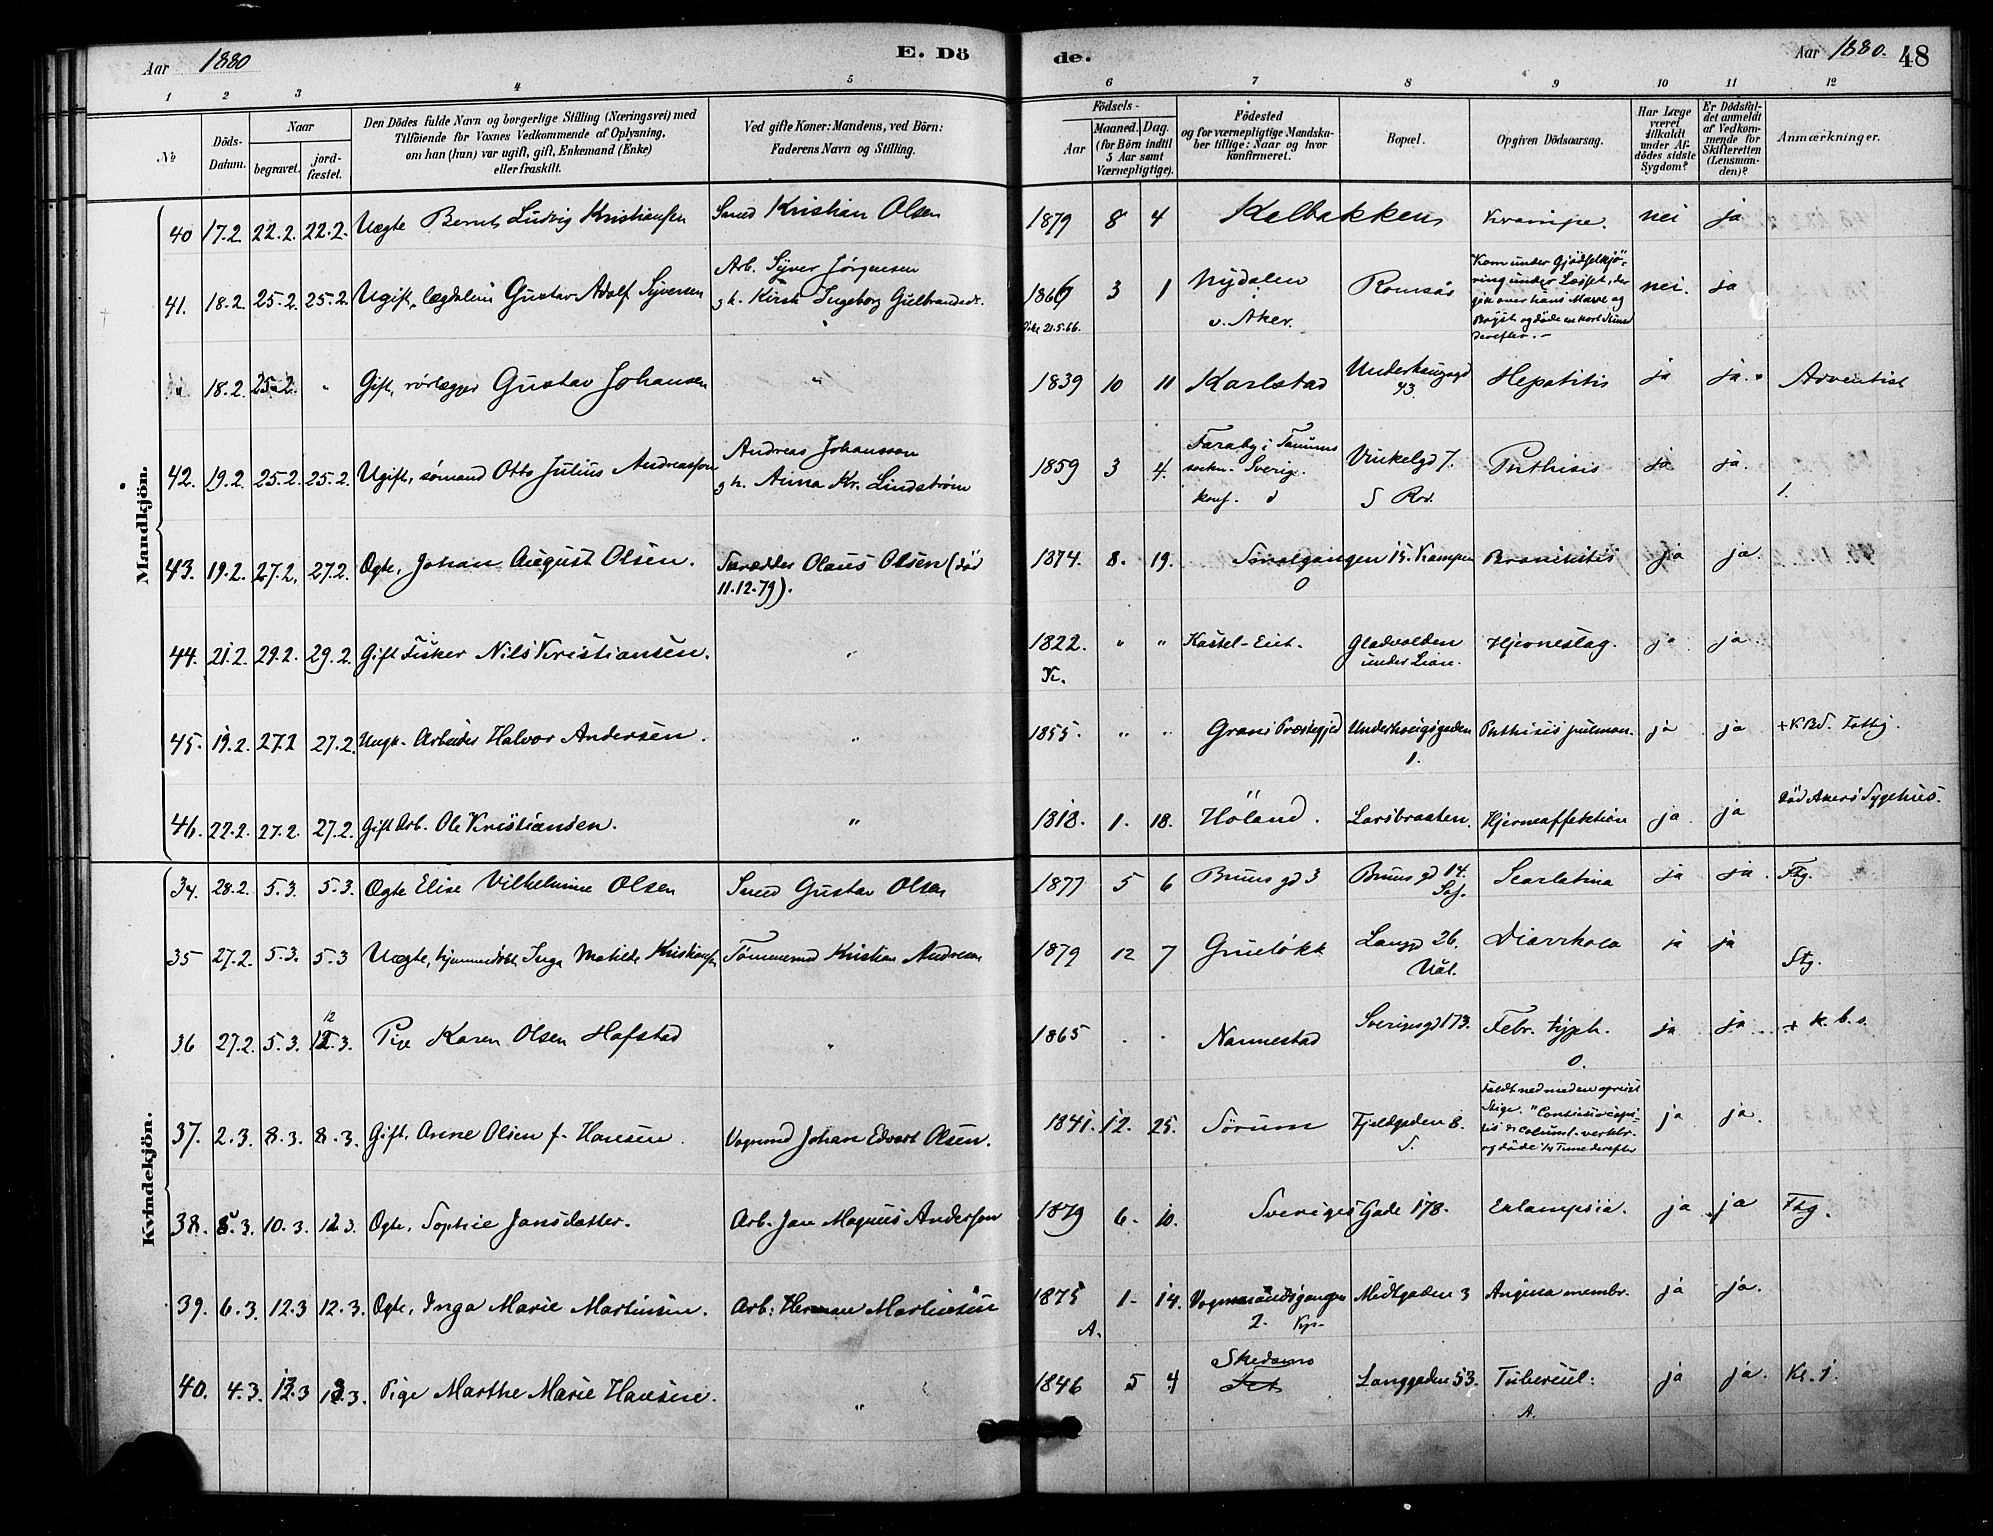 Aar 1880 E. Dö de. Aar 1880. 48
1 2 3 4 5 6 7 8 9 10 11 12
№
Döds-Datum.
Naar
begravet.
jord-fæstet.
Den Dödes fulde Navn og borgerlige Stilling (Næringsvei) med
Tilföiende for Voxnes Vedkommende af Oplysning,
om han (hun) var ugift, gift, Enkemand (Enke)
eller fraskilt.
Ved gifte Koner: Mandens, ved Börn:
Faderens Navn og Stilling.
Födsels-
Aar
Maaned. Dag.
(for Börn indtil
5 Aar samt
Værnepligtige).
Födested
og for værnepligtige Mandska-
ber tillige: Naar og hvor
konfirmeret.
Bopæl.
Opgiven Dödsaarsag.
Har Læge
været
tilkaldt
under Af-
dödes sidste
Sygdom?
Er Dödsfal-
det anmeldt
af Vedkom-
mende for
Skifteretten
(Lensman-
den)?
Anmærkninger.
Mandkjön.
40 17.2. 22.2. 22.2. Uægte Bernt Ludvig Kristiansen Smed Kristian Olsen 1879 8 4 Kalbakken Krampe. nei ja
Arb. Syver Jørgensen
41. 18.2. 25.2. 25.2. Ugift, Gustav Adolf Syversen g h. Kirsti Ingeborg Gulbrandsdr. 1866 3 1 Nydalen Romsås nei. ja
21.5.66. v. Aker.
Kom under Gjødselkjö-
ring under Læsset, der
gik over hans Mave og
Bryst og døde en kort Stund
derefter.-
" 18.2. 25.2. " Gift, rørlægger Gustav Johansen " 1839 10 11 Karlstad Underhaugsgd Hepatitis ja ja. Adventist
43
Andreas Johansson
42. 19.2. 25.2. 25.2. Ugift, sømand Otto Julius Andreassen g h. Anna Kr. Lindstrøm 1859 3 4. Faraby i Tanums Vinkelgd 7. Phthisis ja ja.
sockn. Sverig.
konf.
1.
43. 19.2. 27.2. 27.2. Ægte, Johan August Olsen. Skrædder Olaus Olsen (død 1874. 8. 19. Smalgangen 15. Kampen Bronkitis ja ja.
11.12.79).
44. 21.2. 29.2. 29.2. Gift Fisker Nils Kristiansen. " 1822. " " Kastel-Eiet. Gladvolden Hjerneslag. ja ja
K. under Lian.
45. 19.2. 27.2 27.2. Ungk. Arbeider Halvor Andersen. " 1855. " " Grans Præstegjed Underhaugsgaden Phthisis pulmon. ja ja + K Bd. Fattig.
1.
46. 22.2. 27.2. 27.2. Gift Arb. Ole Kristiansen. " 1818. 1. 18. Høland. Larsbraaten. Hjerneaffektion ja ja død Akers Sygehus.
Kvindekjön.
34. 28.2. 5.3. 5.3. Ægte Elise Vilhelmine Olsen Smed Gustav Olsen 1877 5 6 Bruns gd 3 Bruns gd 14. Scarlatina ja ja. Ftg.
35 27.2. 5.3. 5.3 Uægte, hjemmedøbt Inga Matilde Kristiansen Tømmermd Kristian Andresen 1879 12 7 Grueløkk Langgd 26. Diarrhoea ja ja Ftg.
Vål.
36 27.2. 5.3. 12.3. Pige Karen Olsen Hafstad " 1865 . . Nannestad Sverigsgd 173. Febr. typh. ja ja + k. b. s.
Faldt ned med en opreist
Stige.
37. 2.3. 8.3. 8.3. Gift. Anne Olsen f. Hansen. Vognmd Johan Edvart Olsen. 1841. 12. 25. Sørum Fjeldgaden 8. ja ja.
S. columf. vertebr.
og døde ¼ Time derefter
38. 5.3. 10.3. 12.3. Ægte, Sophie Jansdatter. Arb. Jan Magnus Anderson 1879 6. 10. Sveriges Gade 178. Eclampsia. ja ja Ftg.
39. 6.3. 12.3 12.3. Ægte, Inga Marie Martinsen. Arb. Herman Martinsen 1875 1. 14. Vognmandsgangen Midtgaden 3 Angina membr. ja ja.
A. 2. Kp.
Skedsmo
40. 4.3. 13.3 13.3. Pige Marthe Marie Hansen. " 1846 5 4 Fet Langgaden 53. Tubercul. ja ja. Kr. j.
A.